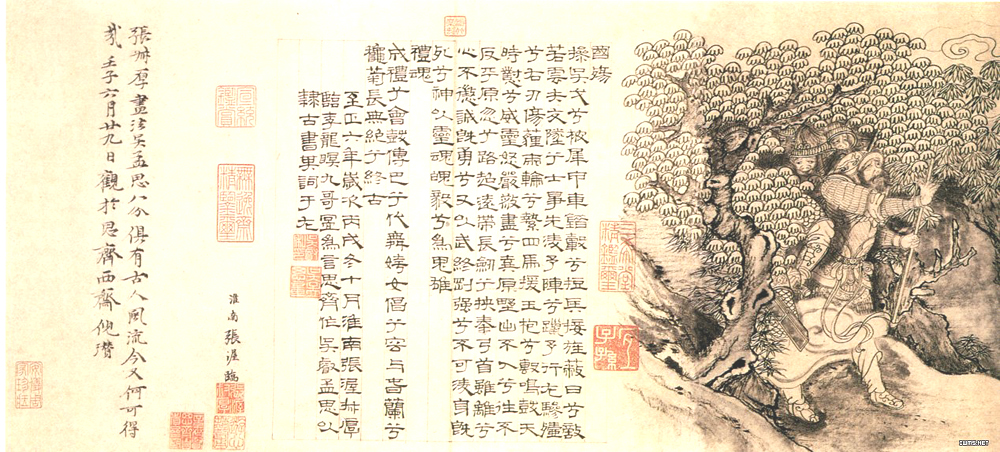 國殤
操吳戈兮被犀甲車錯轂兮短兵接旌蔽日兮敵
若雲矢交墜兮士爭先淩予陣兮躐予行左驂殪
兮右刃傷薶兩輪兮縶四馬援玉枹兮擊鳴鼓天
時懟兮威靈怒嚴殺盡兮棄原壄出不入兮往不
反平原忽兮路超遠帶長劍兮挾秦弓首雖離兮
心不懲誠既勇兮又以武終剛強兮不可淩身既
死兮神以靈魂魄毅兮爲鬼雄
禮魂
成禮兮會鼓傳巴兮代舞姱女倡兮容與春蘭兮
龝菊長無絕兮終古
至正六年歲次丙戌冬十月淮南張渥叔厚
臨李龍眠九哥圖爲言思齊作吳叡孟思以
隸古書其詞于左
淮南張渥臨
張叔厚畫法吳孟思八分俱有古人風流今又何可得
哉壬子六月廿九日觀於思齊西齋倪瓚